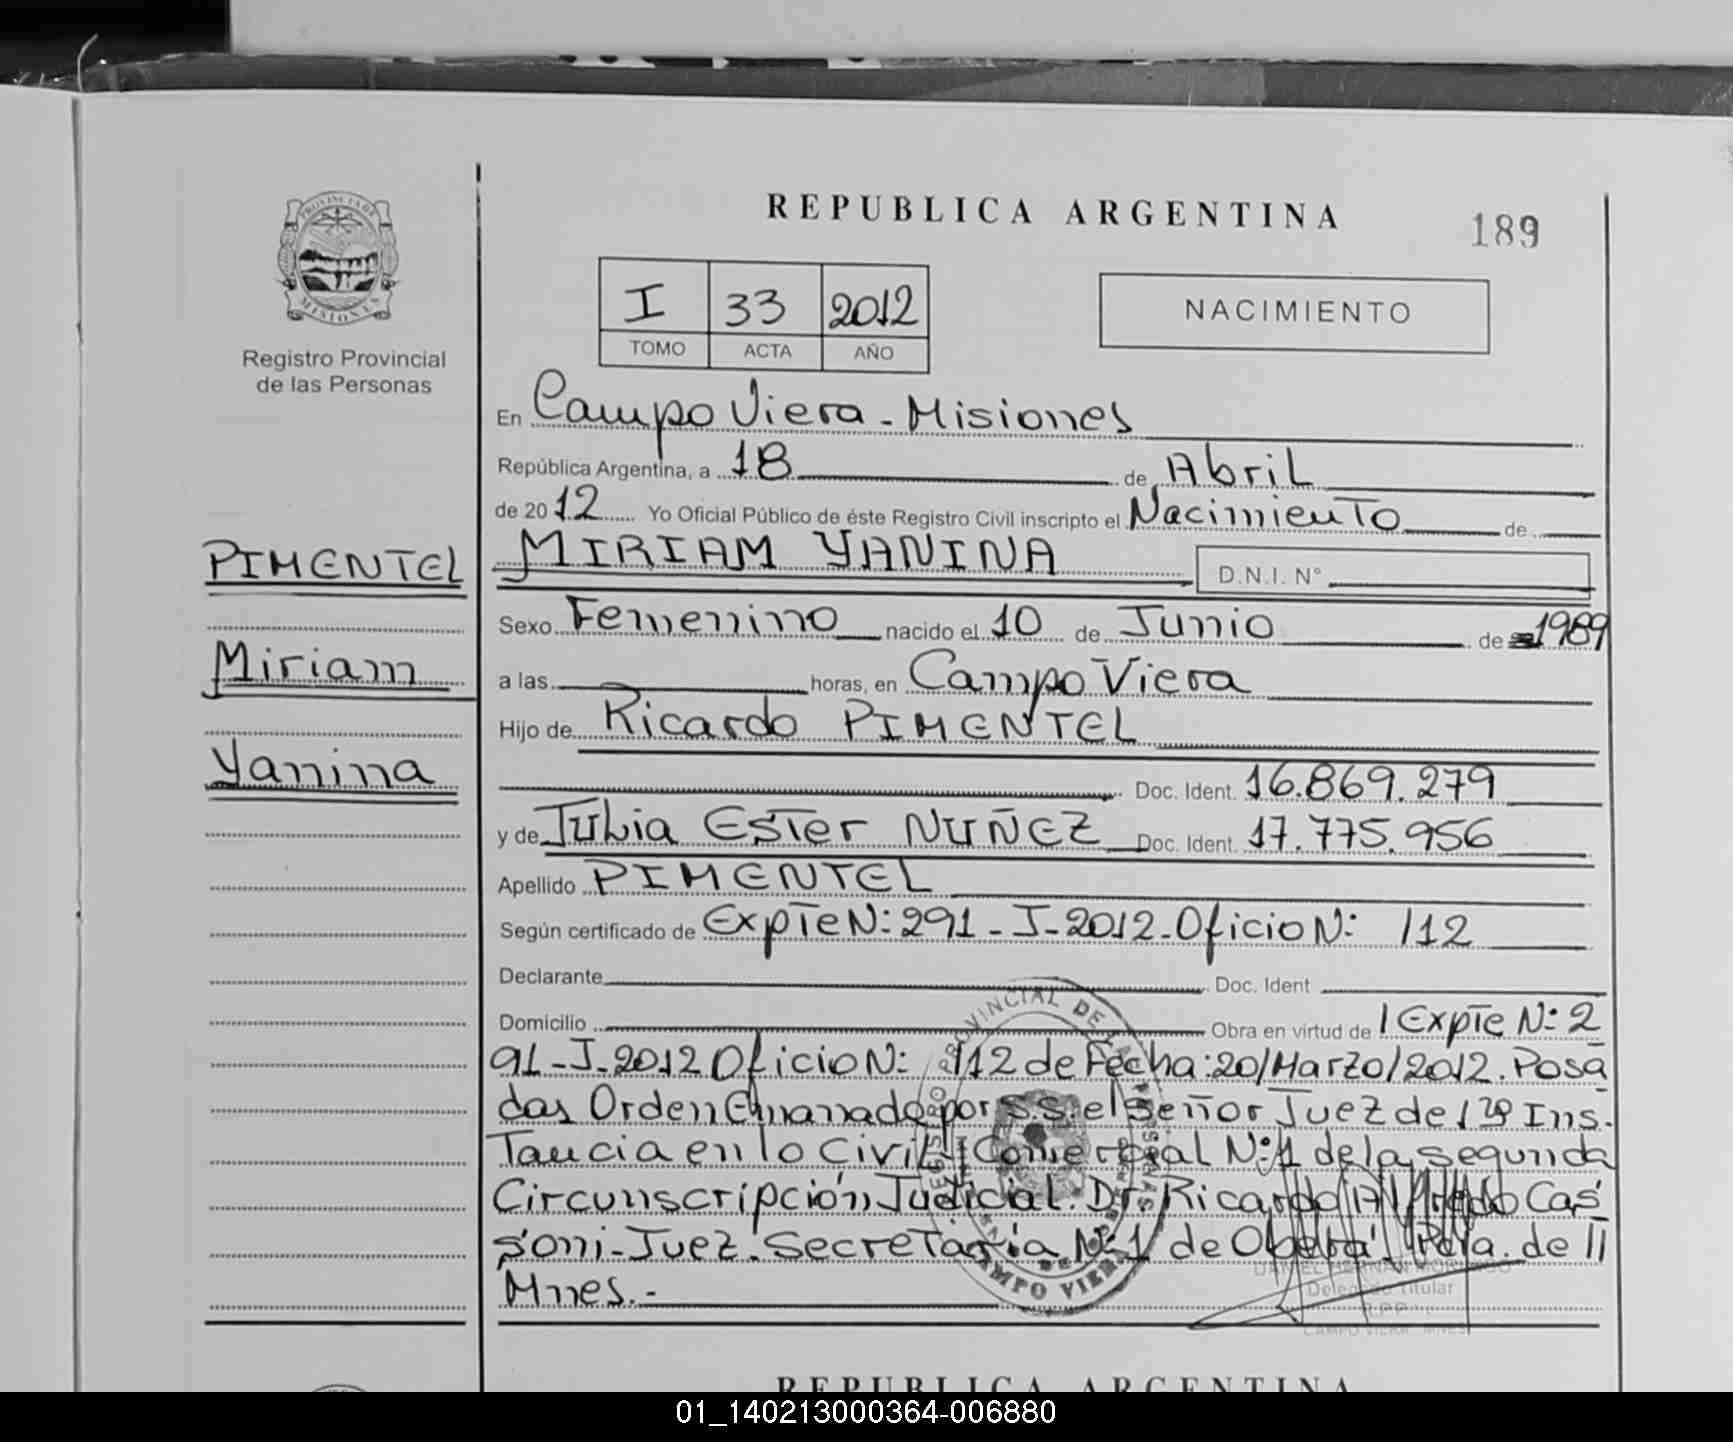 REPUBLICA ARGENTINA
189
PROVINCIA DE
MISIONES
Registro Provincial
de las Personas
I 33 2012
TOMO ACTA AÑO
NACIMIENTO
En Campo Viera - Misiones
República Argentina, a 18 de Abril
de 2012 Yo Oficial Público de éste Registro Civil inscripto el Nacimiento de
PIMENTEL
Miriam
Yanina
MIRIAM YANINA D.N.I. N°
Sexo Femenino nacido el 10 de Junio de 1989
a las horas, en Campo Viera
Hijo de Ricardo PIMENTEL
Doc. Ident. 16.869.279
y de Julia Ester NUÑEZ Doc. Ident. 17.775.956
Apellido PIMENTEL
Según certificado de Expte N: 291 - J - 2012 - Oficio N: /12
Declarante Doc. Ident
Domicilio Obra en virtud de Expte N: 2
91 - J - 2012 Oficio N: /12 de Fecha: 20/Marzo/2012. Posa
das Orden Emanado por S.S. el Señor Juez de 1 Ins-
tancia en lo Civil Comercial N: 1 de la segunda
Circunscripción Judicial. Dr. Ricardo Alfredo Cas
soni - Juez. Secretaria N: 1 de Oberá. Pcia. de
Mnes.-
REGISTRO PROVINCIAL DE LAS PERSONAS
CAMPO VIERA
Delegado Titular
R.P.P.
CAMPO VIERA MNES
REPUBLICA ARGENTINA
01_140213000364-006880